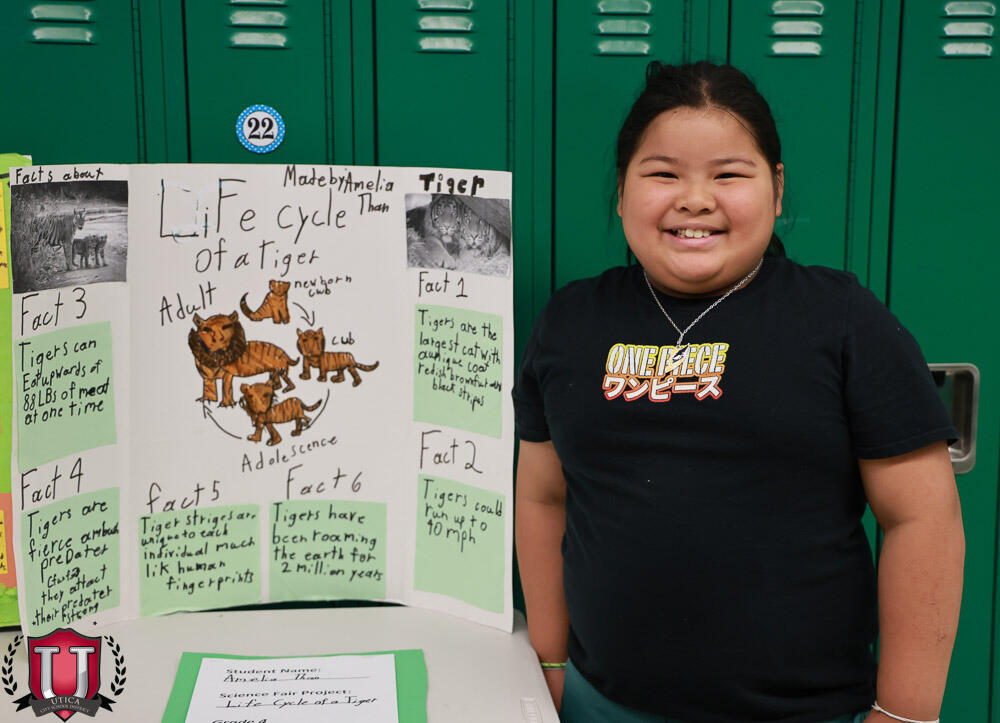 22
Facts about
Made by Amelia
Than
Tiger
LiFe cycle
of a Tiger
Adult
newborn
cub
cub
Adolescence
Fact 1
Tigers are the
largest cat with
coat
redish brown fur with
black stripes
Fact 2
Tigers could
run up to
40 mph
Fact 3
Tigers can
Eat upwards of
88 LBs of meat
at one time
Fact 4
Tigers are
fierce ambush
preDater
they attact
their predater
strong
fact 5
Tiger striges are
unique to each
individual much
lik human
fingerprints
Fact 6
Tigers have
been roaming
the earth for
2 million years
Student Name:
Amelia Than
Science Fair Project:
Life Cycle of a Tiger
Grade 4
ONE PIECE
ワンピース
U
UTICA
CITY SCHOOL DISTRICT